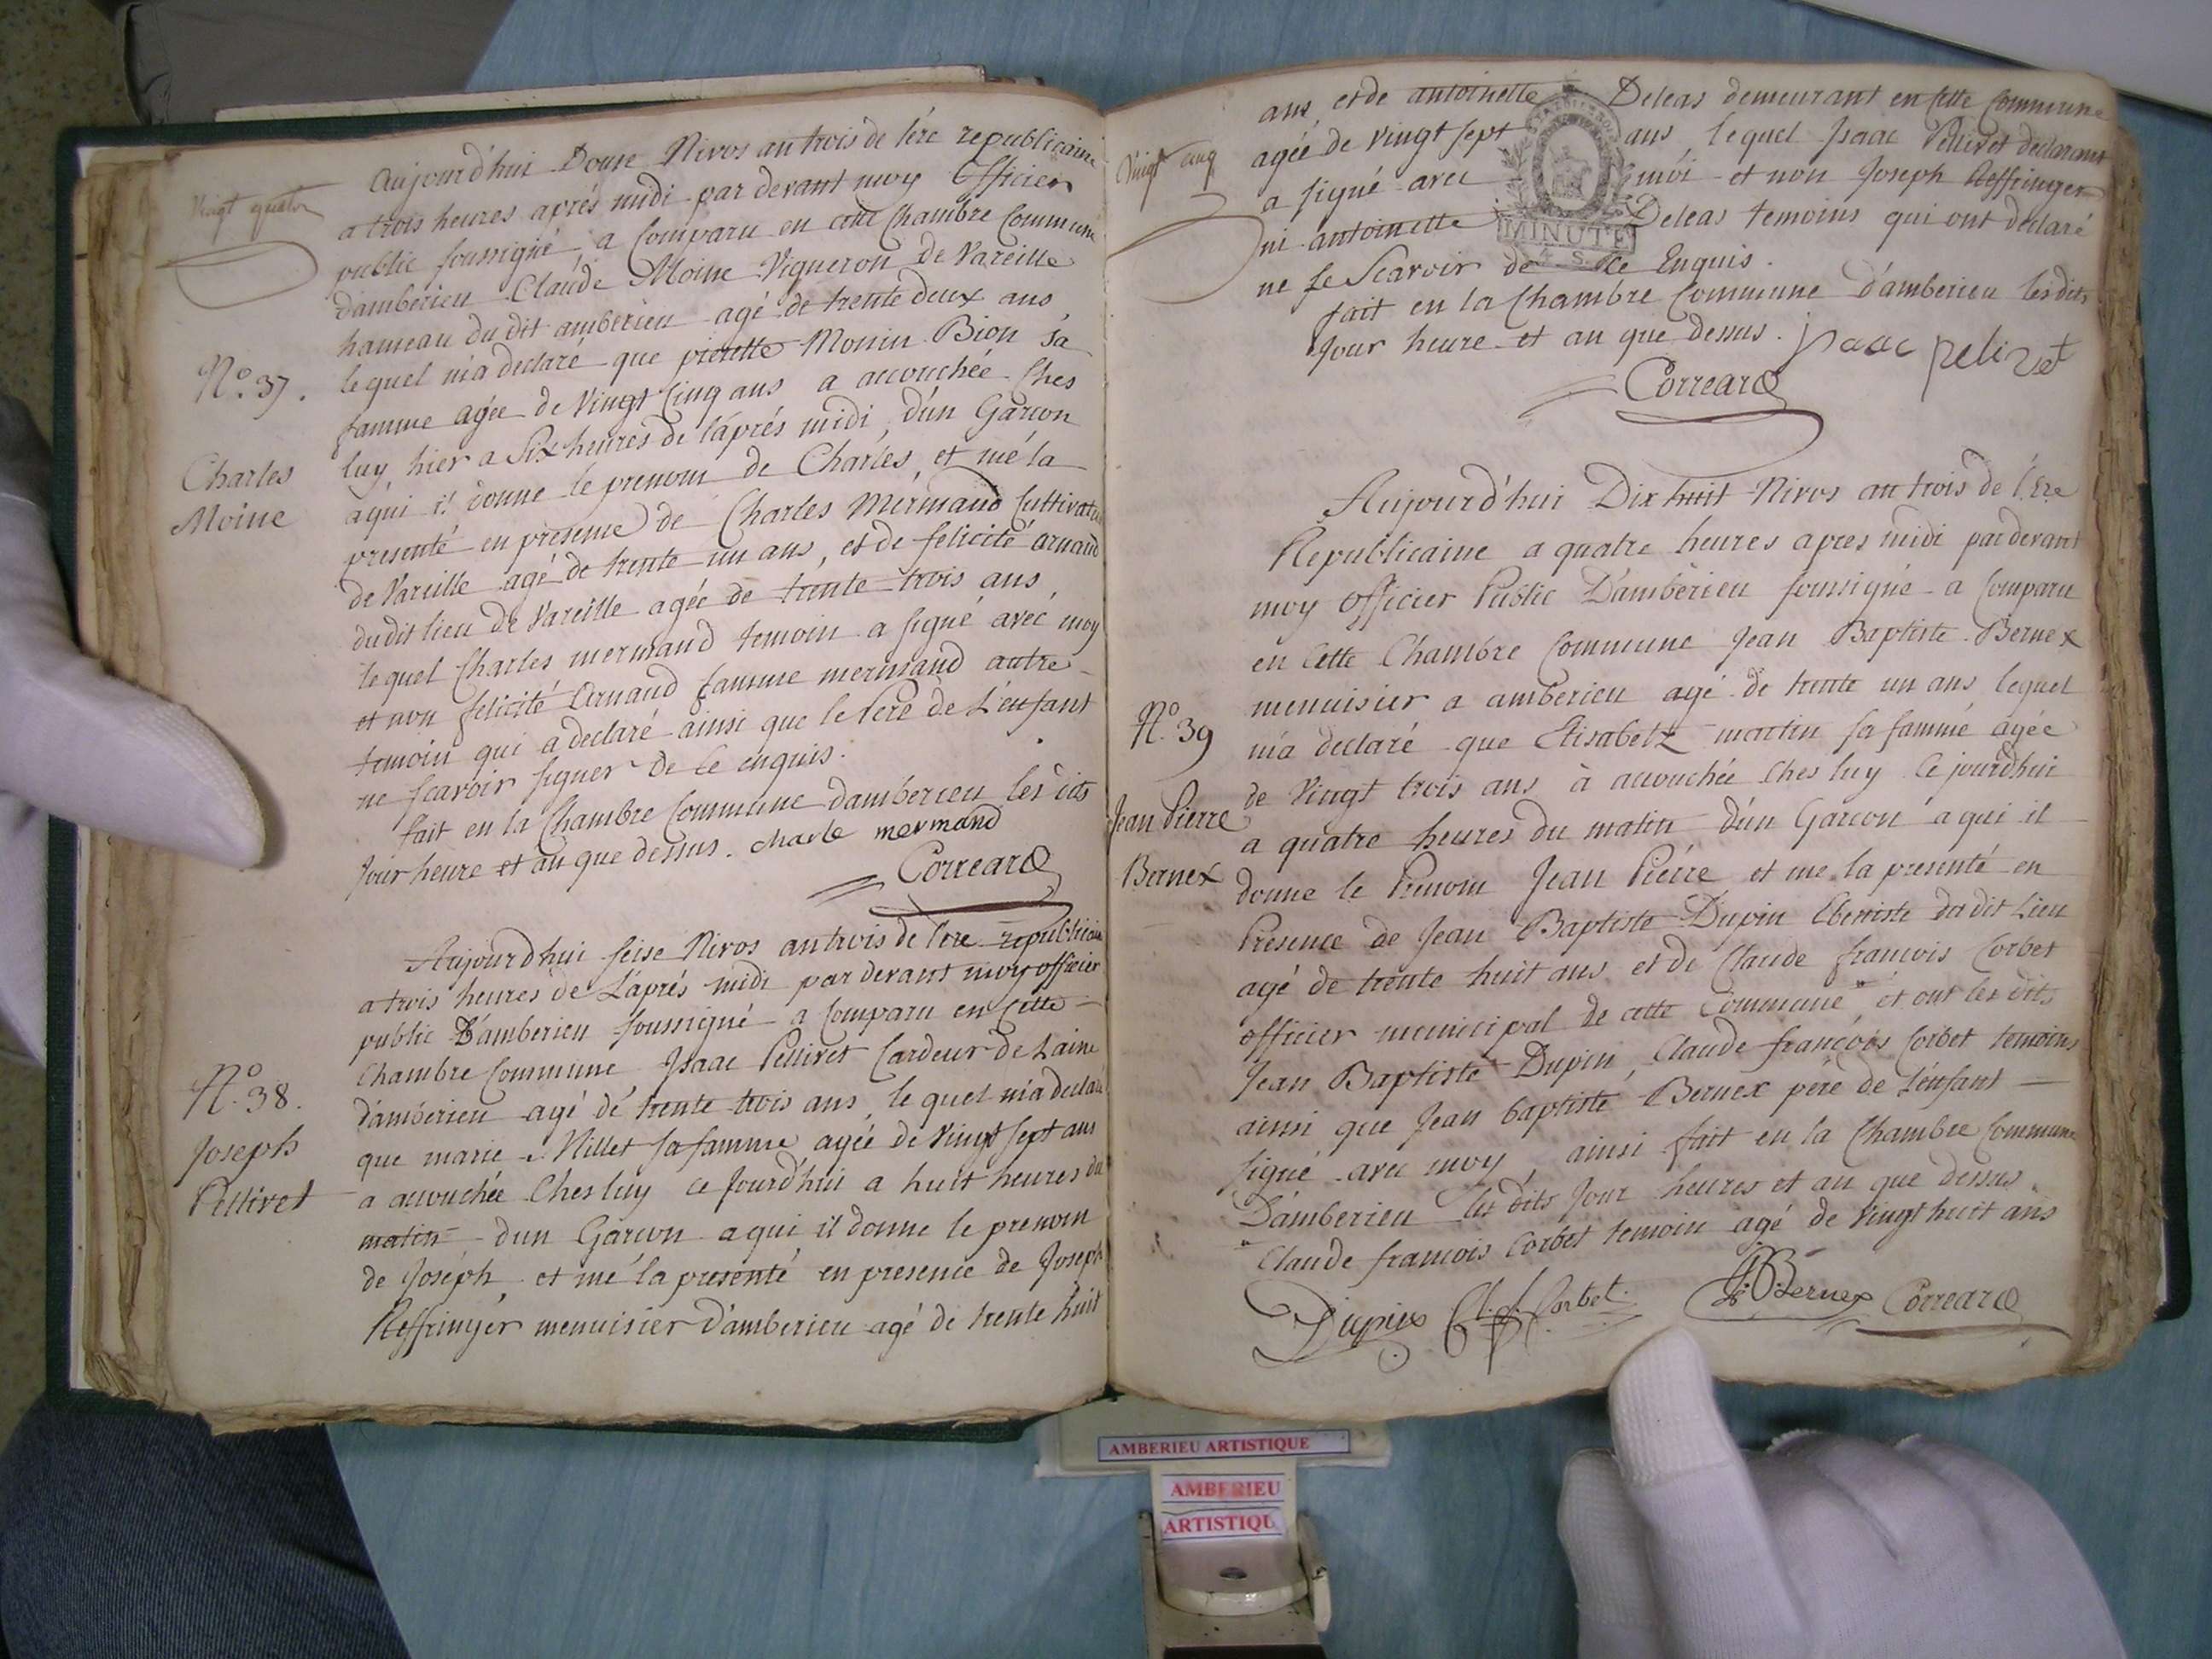 Vingt quatre
Aujourd'hui Douze Nivos an trois de l'ére republicaine
a trois heures aprés midi par devant moy Officier
public soussigné, a Comparu en cette Chambre Commune
d'amberieu Claude Moine Vigneron de Vareille
hameau du dit amberieu agé de trente deux ans
lequel m'a declaré que pierette Monin Bion sa
famme agée de Vingt Cinq ans a accouchée Ches
luy, hier a Six heures de l'aprés midi, d'un Garcon
a qui il donne le prenom de Charles, et me la
presenté en presence de Charles Mermand Cultivateur
de Vareille agé de trente un ans, et de felicité arnaud
du dit lieu de Vareille agée de trente trois ans
lequel Charles mermand temoin a signé avec moy
et non felicité arnaud famme mermand autre
temoin qui a declaré ainsi que le Pere de L'enfant
ne scavoir signer de ce enquis.
fait en la Chambre Commune damberieu les dits
Jour heure et an que dessus. charle mermand
Correard
N.o 37.
Charles
Moine
Aujourdhui seise Nivos an trois de l'ere republicaine
a trois heures de L'aprés midi par devant moy officier
public D'amberieu soussigné a Comparu en Cette
Chambre Commune Isaac Pellivet Cardeur de Laine
d'amberieu agé de trente trois ans, le quel m'a declaré
que marie Millet sa famme agée de Vingt sept ans
a accouchée Ches luy ce Jourd'hui a huit heures du
matin d'un Garcon a qui il donne le prenom
de Joseph, et me la presenté en presence de Joseph
Reffringer menuisier D'amberieu agé de trente huit
N.o 38.
Joseph
Pellivet
Vingt cinq
ans, et de antoinette Deleas demeurant en Cette Commune
agée de Vingt sept ans, lequel Isaac Pellivet declarant
a signé avec moi et non Joseph Reffringer
ni antoinette Deleas temoins qui ont declaré
ne le Scavoir de Ce Enquis.
MINUTE
fait en la Chambre Commune D'amberieu les dits
Jour heure et an que dessus. isaac pelivet
Correard
Aujourd'hui Dix huit Nivos an trois de l'Ere
Republicaine a quatre heures apres midi par devant
moy Officier Public D'amberieu soussigné a Comparu
en Cette Chambre Commune Jean Baptiste Bernex
menuisier a amberieu agé de trente un ans, lequel
m'a declaré que Elisabetz martin sa famme agée
de Vingt trois ans à accouchée Ches luy Ce jourdhui
a quatre heures du matin d'un Garcon a qui il
donne le Prenom Jean Piérre et me la presenté en
Presence de Jean Baptiste Dupin Ebeniste du dit Lieu
agé de trente huit ans et de Claude francois Corbet
officier municipal de cette Commune" et ont les dits
Jean Baptiste Dupin, Claude françois Corbet temoins
ainsi que Jean baptiste Bernex pére de L'enfant
signé avec moy, ainsi fait en la Chambre Commune
D'amberieu les dits Jour heures et an que dessus.
" Claude francois Corbet temoin agé de Vingt huit ans
Dupin Cl. f. Corbet JB Bernex Correard
N.o 39
Jean Pierre
Bernex
AMBERIEU ARTISTIQUE
AMBERIEU
ARTISTIQU